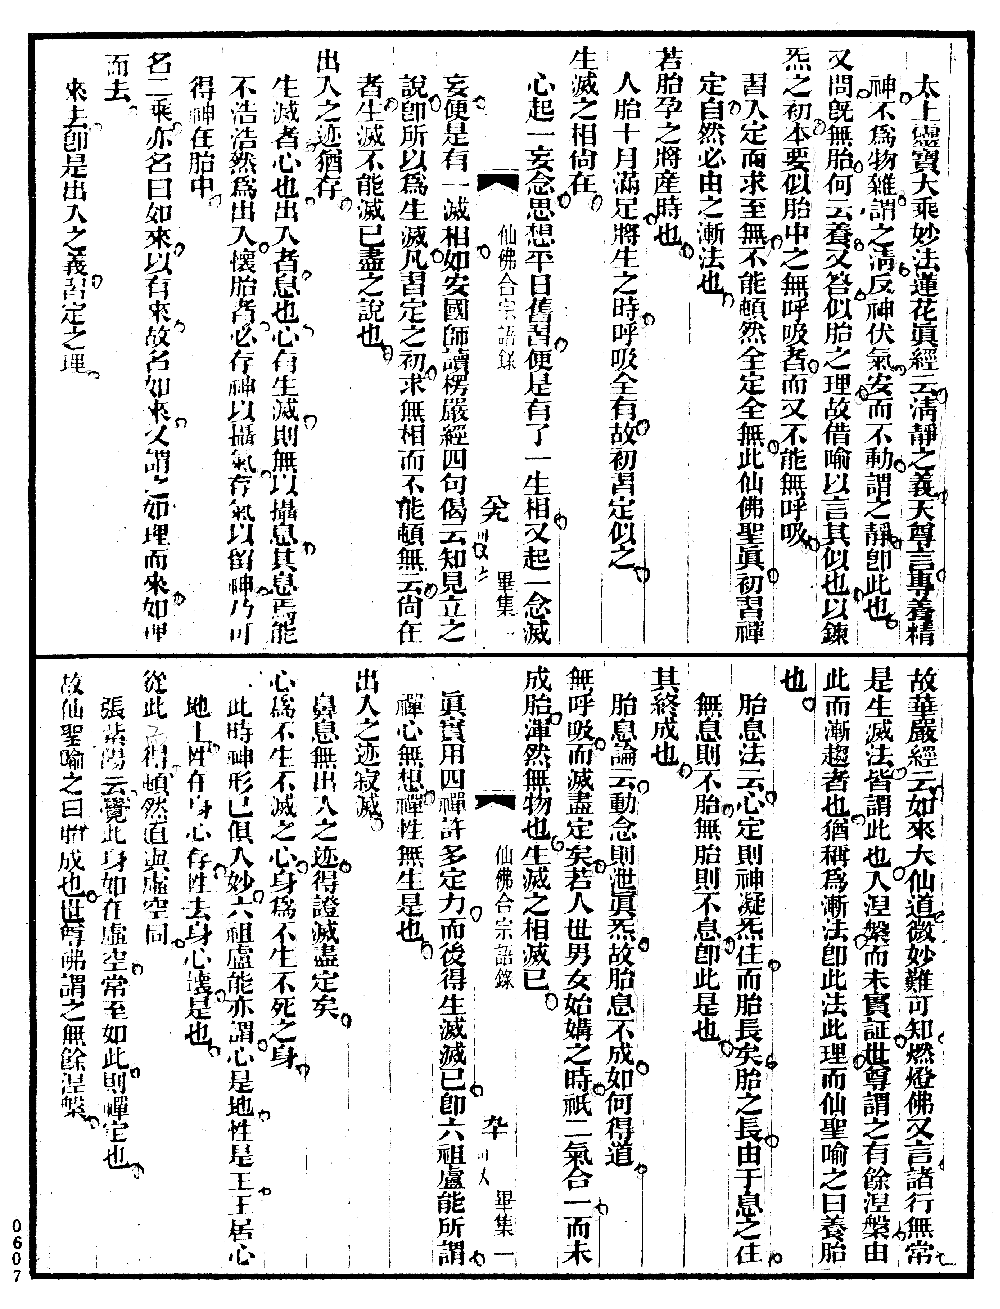 太上靈寶大乘妙法蓮花眞經云淸靜之義天尊言專養精
神不爲物雜謂之淸反神伏氣安而不動謂之靜卽此也
又問旣無胎何云養又答似胎之理故借喻以言其似也以鍊
炁之初本要似胎中之無呼吸者而又不能無呼吸
習入定而求至無不能頓然全定全無此仙佛聖眞初習禪
定自然必由之漸法也
若胎孕之將產時也
人胎十月滿足將生之時呼吸全有故初習定似之
生滅之相尙在
心起一妄念思想平日舊習便是有了一生相又起一念滅
仙佛合宗語錄
畢集
妄便是有一滅相如安國師讀楞嚴經四句偈云知見立之
說卽所以爲生滅凡習定之初求無相而不能頓無云尙在
者生滅不能滅已盡之說也
出入之迹猶存
生滅者心也出入者息也心有生滅則無以攝息其息焉能
不浩浩然爲出入懷胎者必存神以攝氣存氣以留神乃可
得神在胎中
名二乘亦名曰如來以有來故名如來又謂之如理而來如理
而去
來去卽是出入之義習定之理
故華嚴經云如來大仙道微妙難可知燃燈佛又言諸行無常
是生滅法皆謂此也入涅槃而未實証世尊謂之有餘涅槃由
此而漸趨者也猶稱爲漸法卽此法此理而仙聖喻之曰養胎
也
胎息法云心定則神凝炁住而胎長矣胎之長由于息之住
無息則不胎無胎則不息卽此是也
其終成也
胎息論云動念則泄眞炁故胎息不成如何得道
無呼吸而滅盡定矣若人世男女始媾之時祇二氣合一而未
成胎渾然無物也生滅之相滅已
仙佛合宗語錄
畢集一
眞實用四禪許多定力而後得生滅滅已卽六祖盧能所謂
禪心無想禪性無生是也
出入之迹寂滅
鼻息無出入之迹得證滅盡定矣
心爲不生不滅之心身爲不生不死之身
此時神形已俱入妙六祖盧能亦謂心是地性是王王居心
地上性在身心存性去身心壞是也
從此 得頓然直與虛空同
張紫陽云覺此身如在虛空常至如此則禪定也
故仙聖喻之曰胎成也世尊佛謂之無餘涅槃
0607